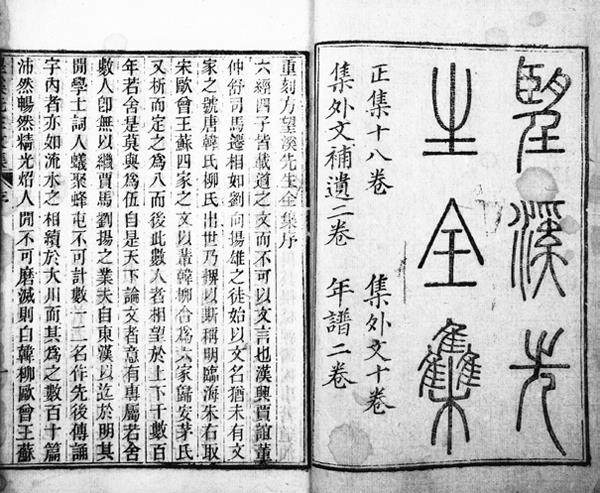 望溪先
生全集
正集十八卷 集外文十卷
集外文補遺二卷 年譜二卷
重刻方望溪先生全集序
六經四子皆載道之文而不可以文言也漢興賈誼董
仲舒司馬遷相如劉向揚雄之徒始以文名猶未有文
家之號唐韓氏柳氏出世乃稱以斯稱明臨海朱右取
宋歐曾王蘇四家之文以輩韓柳合為六家歸安茅氏
又析而定之為八而後此數人者相望於上下千數百
年若舍是莫與為伍自是天下論文者意有專屬若舍
數人卽無以繼賈馬劉揚之業夫自東漢以迄於明其
閒學士詞人蟻聚蜂屯不可計數一二名作先後傳誦
宇內者亦如流水之相續於大川而其為之數百十篇
沛然暢然精光焰人閒不可磨滅則自韓柳歐曾王蘇